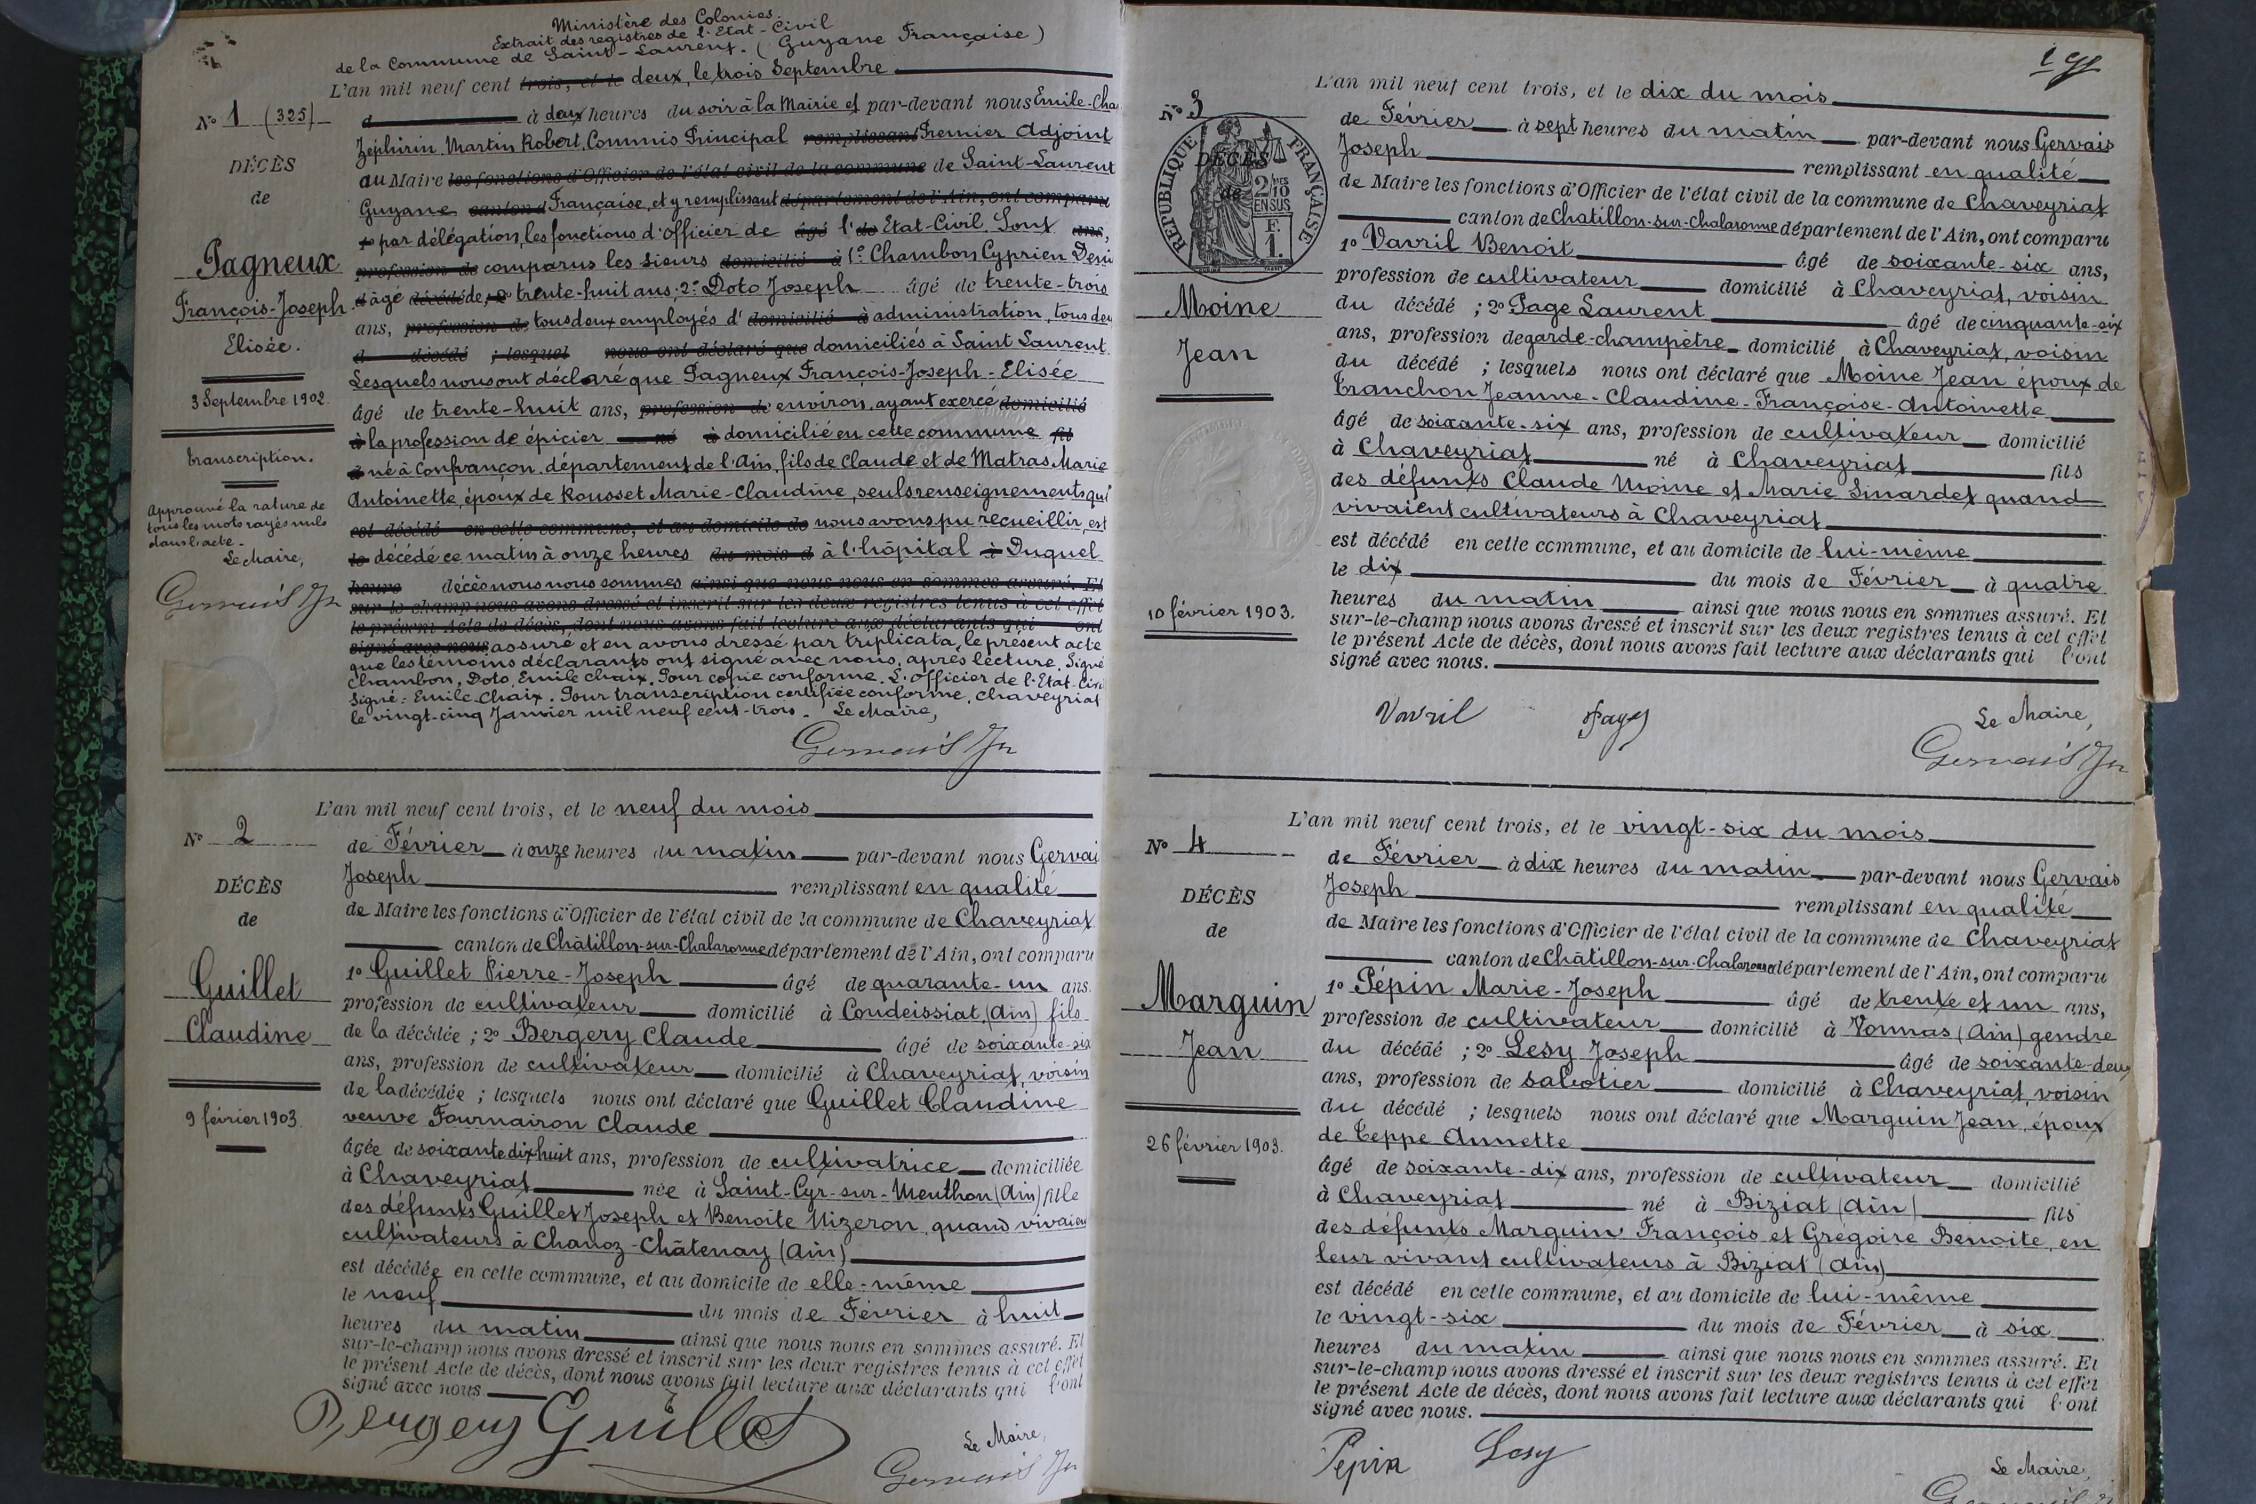 Ministère des Colonies.
Extrait des registres de l'Etat-Civil
de la Commune de Saint-Laurent. (Guyane Française)
L'an mil neuf cent trois, et le deux, le trois Septembre
N° 1 (325)
à deux heures du soir à la Mairie et par-devant nous Emile-Cha
Zéphirin Martin Robert, Commis Principal remplissant Premier Adjoint
DÉCÈS
au Maire les fonctions d'Officier de l'état civil de la commune de Saint-Laurent
de
Guyane canton d Française, et y remplissant département de l'Ain, ont comparu
1° par délégation, les fonctions d'officier de âgé l' de Etat-Civil. Sont ans,
Pagneux
profession de comparus les sieurs domicilié à 1° Chambon Cyprien Deni
François-Joseph
d âgé décédé de, 2° trente-huit ans; 2° Doto Joseph âgé de trente-trois
Elisée.
ans, profession de tous deux employés d' domicilié à administration, tous deu
d décédé ; lesquel nous ont déclaré que domiciliés à Saint Laurent.
3 Septembre 1902.
Lesquels nous ont déclaré que Pagneux François-Joseph-Elisée
âgé de trente-huit ans, profession de environ, ayant exercé domicilié
à la profession de épicier né à domicilié en cette commune fil
transcription.
d né à Confrançon, département de l'Ain, fils de Claude et de Matras Marie
Antoinette, époux de Rousset Marie-Claudine, seuls renseignements qu'
Approuvé la rature de
tous les mots rayés nuls
dans l'acte.
Le Maire,
Gervais Jh
est décédé en cette commune, et au domicile de nous avons pu recueillir, est
le décédé ce matin à onze heures du mois d à l'hôpital à Duquel
heure décès nous nous sommes ainsi que nous nous en sommes assuré. Et
sur-le-champ nous avons dressé et inscrit sur les deux registres tenus à cet effet
le présent Acte de décès, dont nous avons fait lecture aux déclarants qui ont
signé avec nous assuré et en avons dressé par triplicata, le présent acte
que les témoins déclarants ont signé avec nous, après lecture. Signé
Chambon, Doto, Emile Chaix. Pour copie conforme. L'officier de l'Etat-Civi
Signé: Emile Chaix. Pour transcription certifiée conforme, Chaveyriat
le vingt-cinq Janvier mil neuf cent-trois. Le Maire,
Gervais Jh
L'an mil neuf cent trois, et le neuf du mois
N° 2
de Février à onze heures du matin par-devant nous Gervai
Joseph remplissant en qualité
DÉCÈS
de Maire les fonctions d'Officier de l'état civil de la commune de Chaveyriat
de
canton de Châtillon-sur-Chalaronne département de l'Ain, ont comparu
Guillet
1° Guillet Pierre-Joseph âgé de quarante-un ans.
profession de cultivateur domicilié à Condeissiat, (Ain) fils
Claudine
de la décédée ; 2° Bergery Claude âgé de soixante-six
ans, profession de cultivateur domicilié à Chaveyriat, voisin
de la décédée ; lesquels nous ont déclaré que Guillet Claudine
9 février 1903.
veuve Fournairon Claude
âgée de soixante dix huit ans, profession de cultivatrice domiciliée
à Chaveyriat née à Saint-Cyr-sur-Menthon (Ain) fille
des défunts Guillet Joseph et Benoite Nizeron, quand vivaien
cultivateurs à Chanoz-Châtenay (Ain)
est décédée en cette commune, et au domicile de elle-même
le neuf du mois de Février à huit
heures du matin ainsi que nous nous en sommes assuré. Et
sur-le-champ nous avons dressé et inscrit sur les deux registres tenus à cet effet
le présent Acte de décès, dont nous avons fait lecture aux déclarants qui l'ont
signé avec nous
Bergery Guillet
Le Maire,
Gervais Jh
L'an mil neuf cent trois, et le dix du mois
N° 3
de Février à sept heures du matin par-devant nous Gervais
Joseph remplissant en qualité
RÉPUBLIQUE FRANÇAISE
DÉCÈS
de
2/10 EN SUS
F. 1.
de Maire les fonctions d'Officier de l'état civil de la commune de Chaveyriat
canton de Chatillon-sur-Chalaronne département de l'Ain, ont comparu
1° Vavril Benoit âgé de soixante-six ans,
profession de cultivateur domicilié à Chaveyriat, voisin
Moine
du décédé ; 2° Page Laurent âgé de cinquante-six
ans, profession de garde-champêtre domicilié à Chaveyriat, voisin
Jean
du décédé ; lesquels nous ont déclaré que Moine Jean époux de
Tranchon Jeanne-Claudine-Françoise-Antoinette
âgé de soixante-six ans, profession de cultivateur domicilié
à Chaveyriat né à Chaveyriat fils
des défunts Claude Moine et Marie Sinardet quand
vivaient cultivateurs à Chaveyriat
est décédé en cette commune, et au domicile de lui-même
le dix du mois de Février à quatre
10 février 1903.
heures du matin ainsi que nous nous en sommes assuré. Et
sur-le-champ nous avons dressé et inscrit sur les deux registres tenus à cet effet
le présent Acte de décès, dont nous avons fait lecture aux déclarants qui l'ont
signé avec nous.
Vavril Page
Le Maire,
Gervais Jh
L'an mil neuf cent trois, et le vingt-six du mois
N° 4
de Février à dix heures du matin par-devant nous Gervais
Joseph remplissant en qualité
DÉCÈS
de Maire les fonctions d'Officier de l'état civil de la commune de Chaveyriat
de
canton de Châtillon-sur-Chalaronne département de l'Ain, ont comparu
Marguin
1° Pépin Marie-Joseph âgé de trente et un ans,
profession de cultivateur domicilié à Vonnas (Ain) gendre
Jean
du décédé ; 2° Lesy Joseph âgé de soixante-deux
ans, profession de sabotier domicilié à Chaveyriat, voisin
du décédé ; lesquels nous ont déclaré que Marguin Jean, époux
26 février 1903.
de Teppe Annette
âgé de soixante-dix ans, profession de cultivateur domicilié
à Chaveyriat né à Biziat (Ain) fils
des défunts Marguin François et Grégoire Benoite, en
leur vivant cultivateurs à Biziat (Ain)
est décédé en cette commune, et au domicile de lui-même
le vingt-six du mois de Février à six
heures du matin ainsi que nous nous en sommes assuré. Et
sur-le-champ nous avons dressé et inscrit sur les deux registres tenus à cet effet
le présent Acte de décès, dont nous avons fait lecture aux déclarants qui l'ont
signé avec nous.
Pépin Lesy
Le Maire,